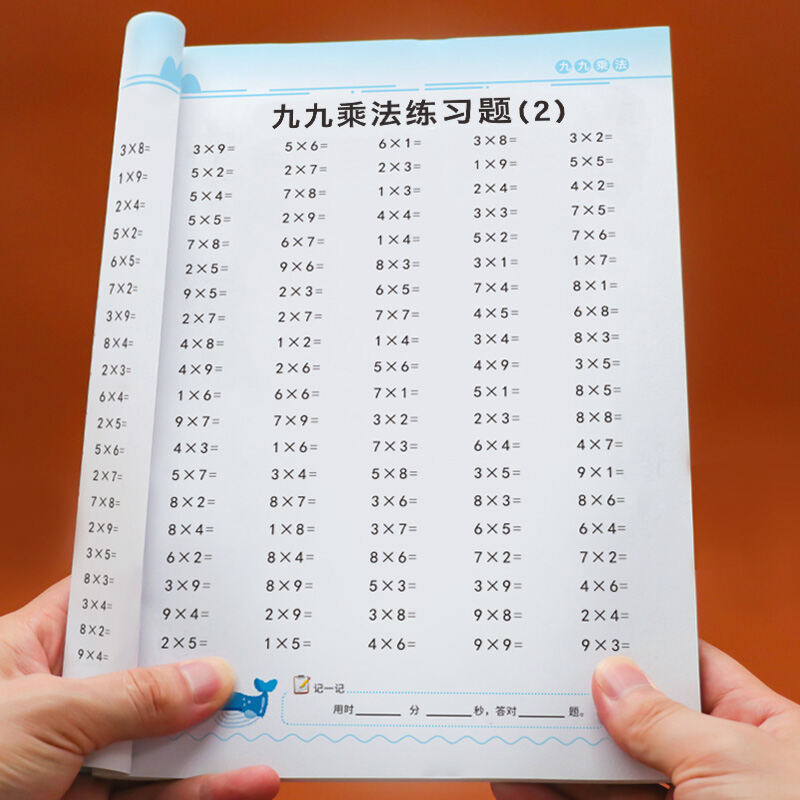 九九乘法
九九乘法练习题(2)
3×8=
1×9=
2×4=
5×2=
6×5=
7×2=
3×9=
8×4=
2×3=
6×4=
2×5=
5×6=
2×7=
7×8=
2×9=
3×5=
8×3=
3×4=
8×2=
9×4=
3×9= 5×6= 6×1= 3×8= 3×2=
5×2= 2×7= 2×3= 1×9= 5×5=
5×4= 7×8= 1×3= 2×4= 4×2=
5×5= 2×9= 4×4= 3×3= 7×5=
7×8= 6×7= 1×4= 5×2= 7×6=
2×5= 9×6= 8×3= 3×1= 1×7=
9×5= 2×3= 6×5= 7×4= 8×1=
2×7= 2×7= 7×7= 4×5= 6×8=
4×8= 1×2= 1×4= 3×4= 8×3=
4×9= 2×6= 5×6= 4×9= 3×5=
1×6= 6×6= 7×1= 5×1= 8×5=
9×7= 7×9= 3×2= 2×3= 8×8=
4×3= 1×6= 7×3= 6×4= 4×7=
5×7= 3×4= 5×8= 3×5= 9×1=
8×2= 8×7= 3×6= 8×3= 8×6=
8×4= 1×8= 3×7= 6×5= 6×4=
6×2= 8×4= 8×6= 7×2= 7×2=
3×9= 8×9= 5×3= 3×9= 4×6=
9×4= 2×9= 3×8= 9×8= 2×4=
2×5= 1×5= 4×6= 9×9= 9×3=
记一记
用时______ 分 ______秒，答对______ 题。